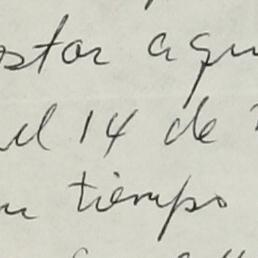 estar aqu
el 14 de
tiempo